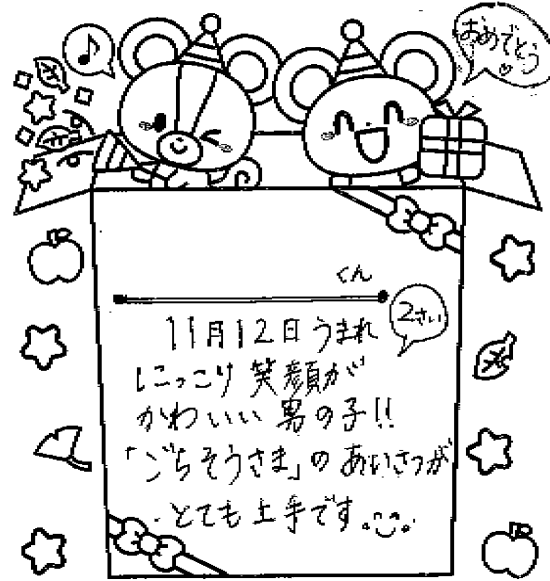 おめでとう
くん
2さい
11月12日うまれ
にっこり笑顔が
かわいい男の子!!
「ごちそうさま」のあいさつが
とても上手です。